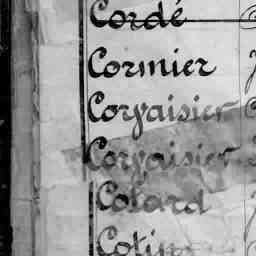 Cordé
Cormier
Corvaisier
Corvaisier
Cotard
Cotin